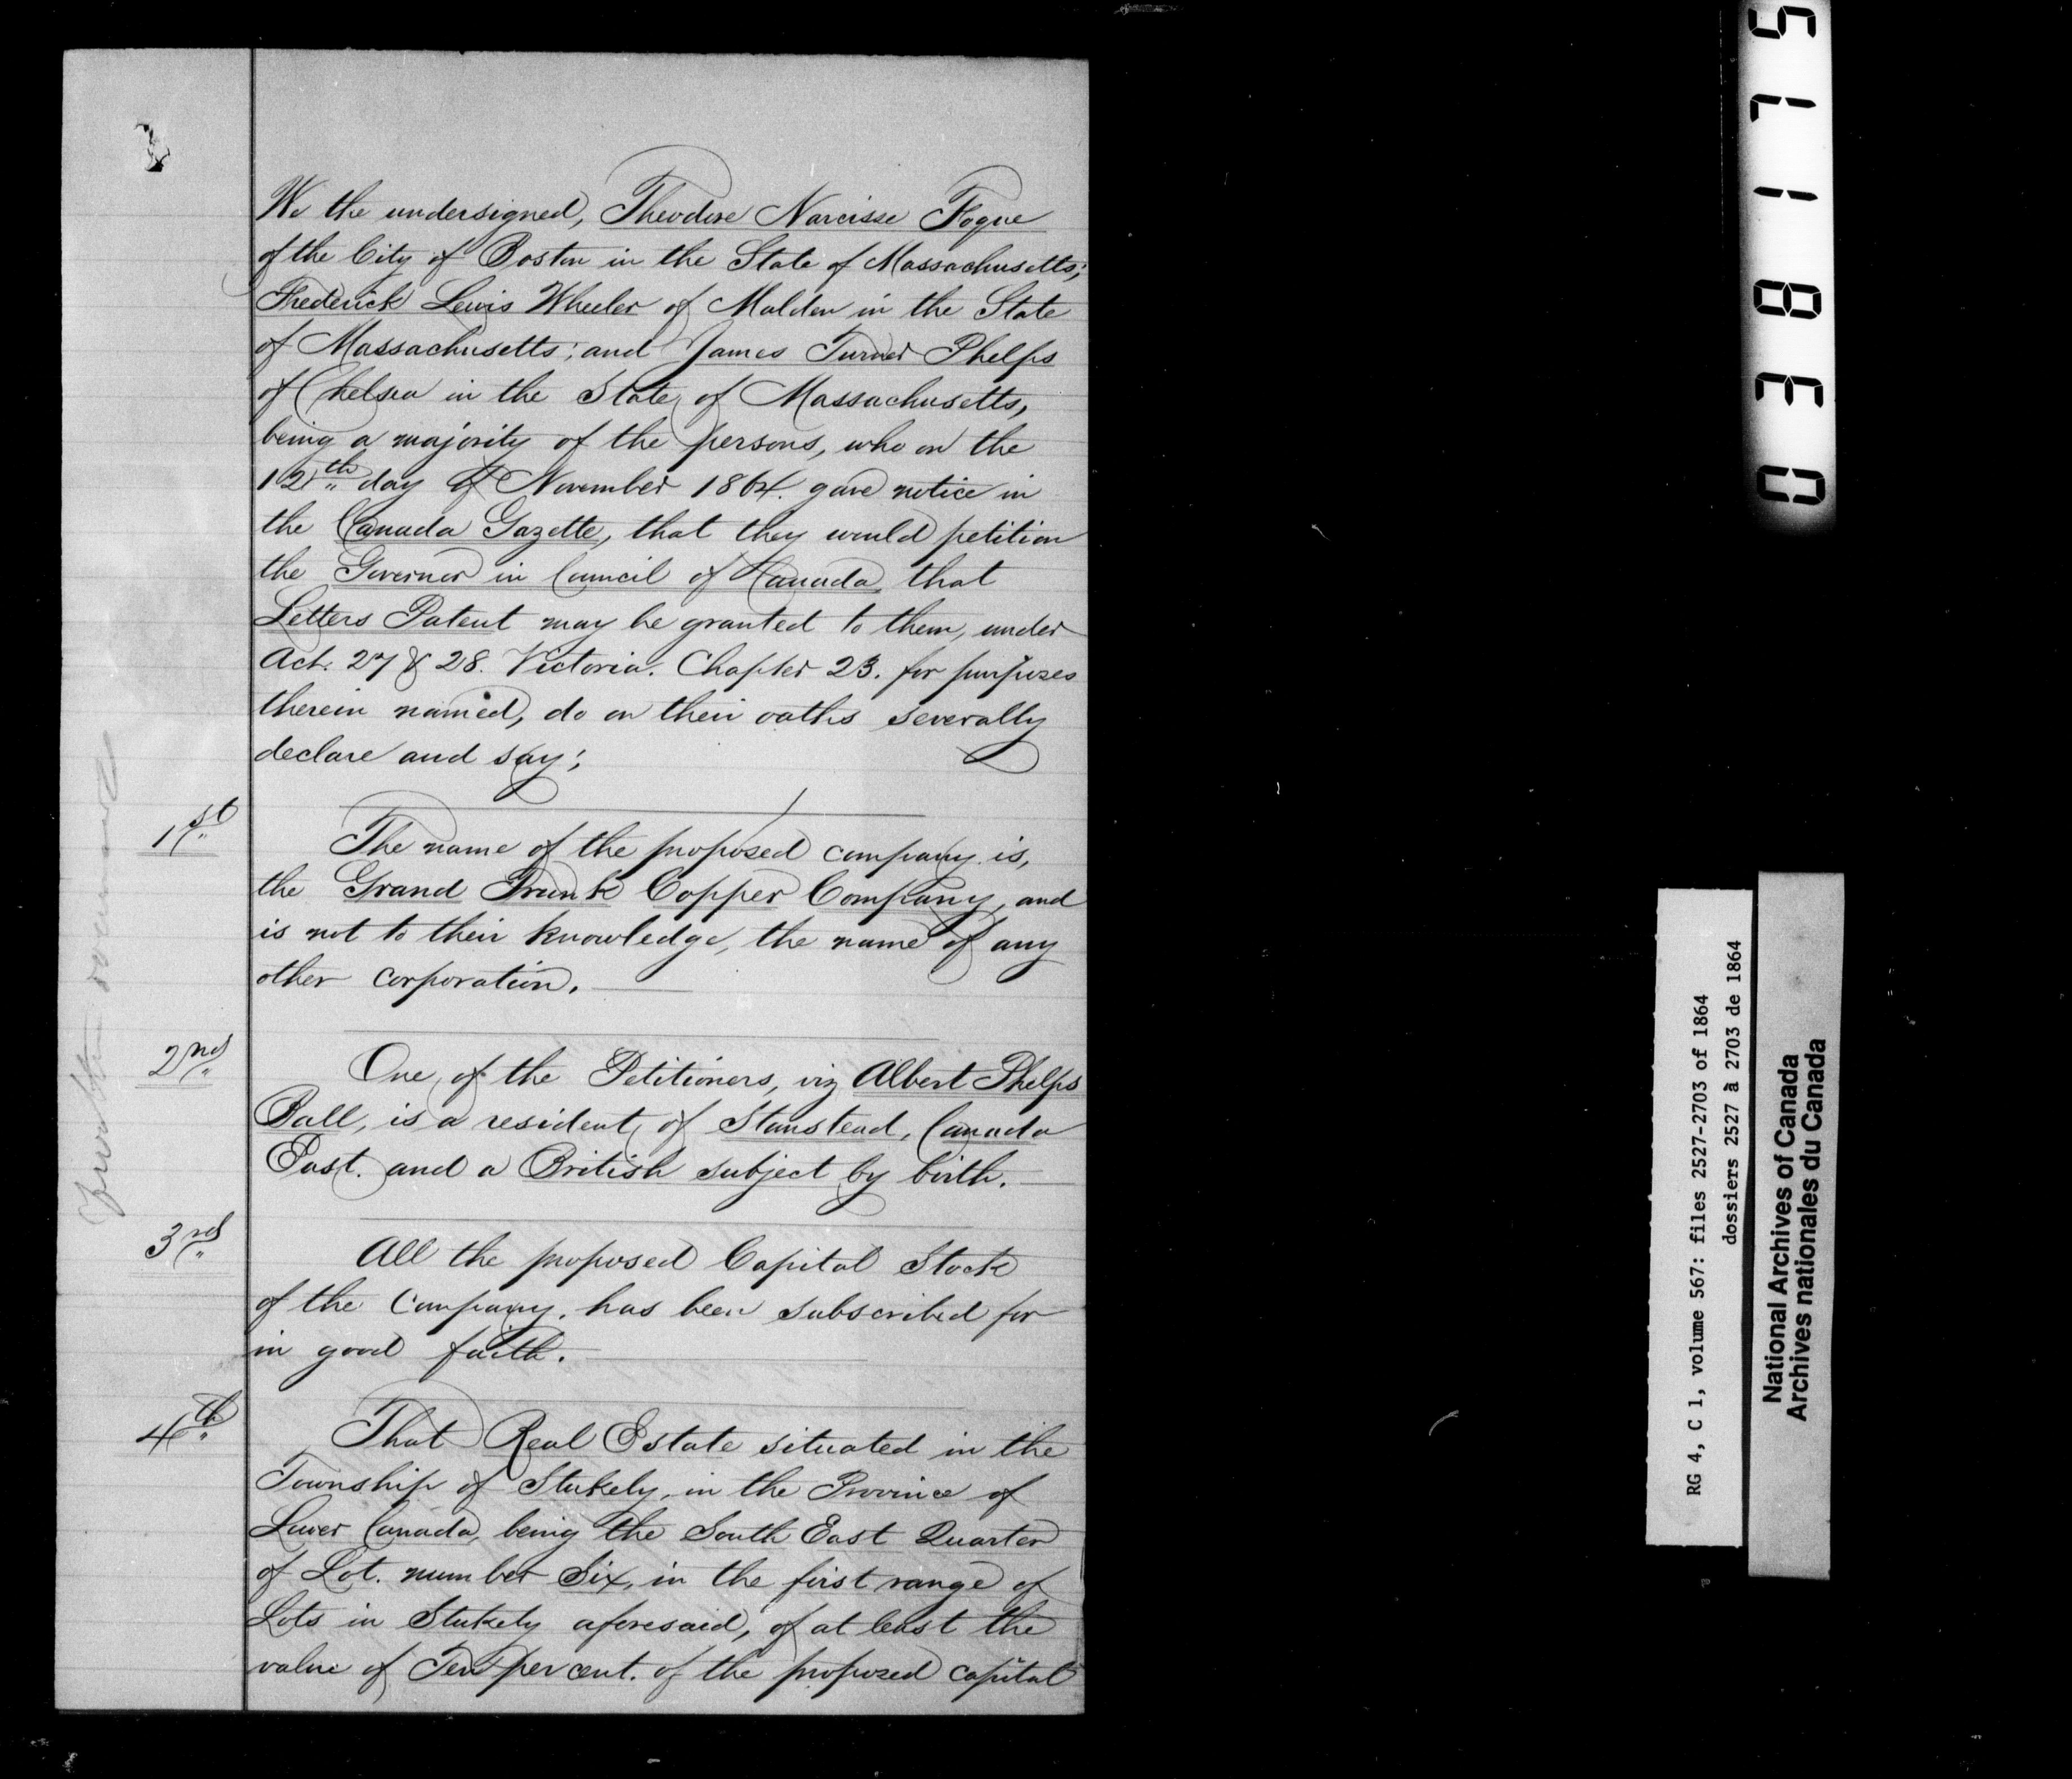 We the undersigned, Theodore Narcisse Fogue
of the City of Boston in the State of Massachusetts;
Frederick Lewis Wheeler of Malden in the State
of Massachusetts; and James Turner Phelps
of Chelsea in the State of Massachusetts,
being a majority of the persons, who on the
12th day of November 1864. gave notice in
the Canada Gazette, that they would petition
the Governor in Council of Canada, that
Letters Patent may be granted to them, under
Act. 27 & 28. Victoria. Chapter 23. for purposes
therein named, do on their oaths severally
declare and say;
1st
The name of the proposed company is,
the Grand Trunk Copper Company, and
is not to their knowledge, the name of any
other corporation.
2nd
One of the Petitioners, viz Albert Phelps
Ball, is a resident of Stanstead, Canada
East. and a British subject by birth.
3rd
All the proposed Capital Stock
of the Company, has been subscribed for
in good faith.
4th
That Real Estate situated in the
Township of Stukely, in the Province of
Lower Canada, being the South East Quarter
of Lot. number Six, in the first range of
Lots in Stukely aforesaid, of at least the
value of Ten per cent. of the proposed capital
038175
RG 4, C 1, volume 567: files 2527-2703 of 1864
dossiers 2527 à 2703 de 1864
National Archives of Canada
Archives nationales du Canada